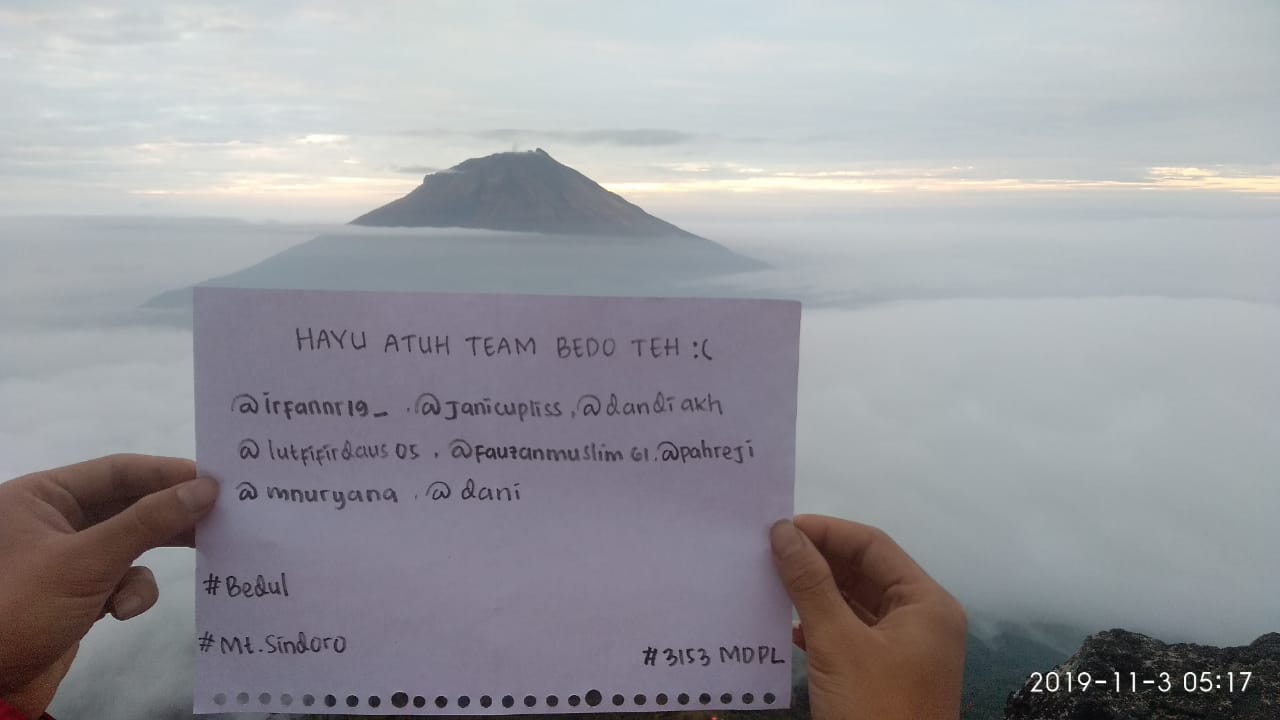 HAYU ATUH TEAM BEDO TEH :(
@irfannr19_ . @Janicupliss , @dandiakh
@lutfifirdaus05 . @fauzanmuslim61 . @pahreji
@mnuryana . @dani
#Bedul
#Mt.Sindoro
#3153 MDPL
2019-11-3 05:17